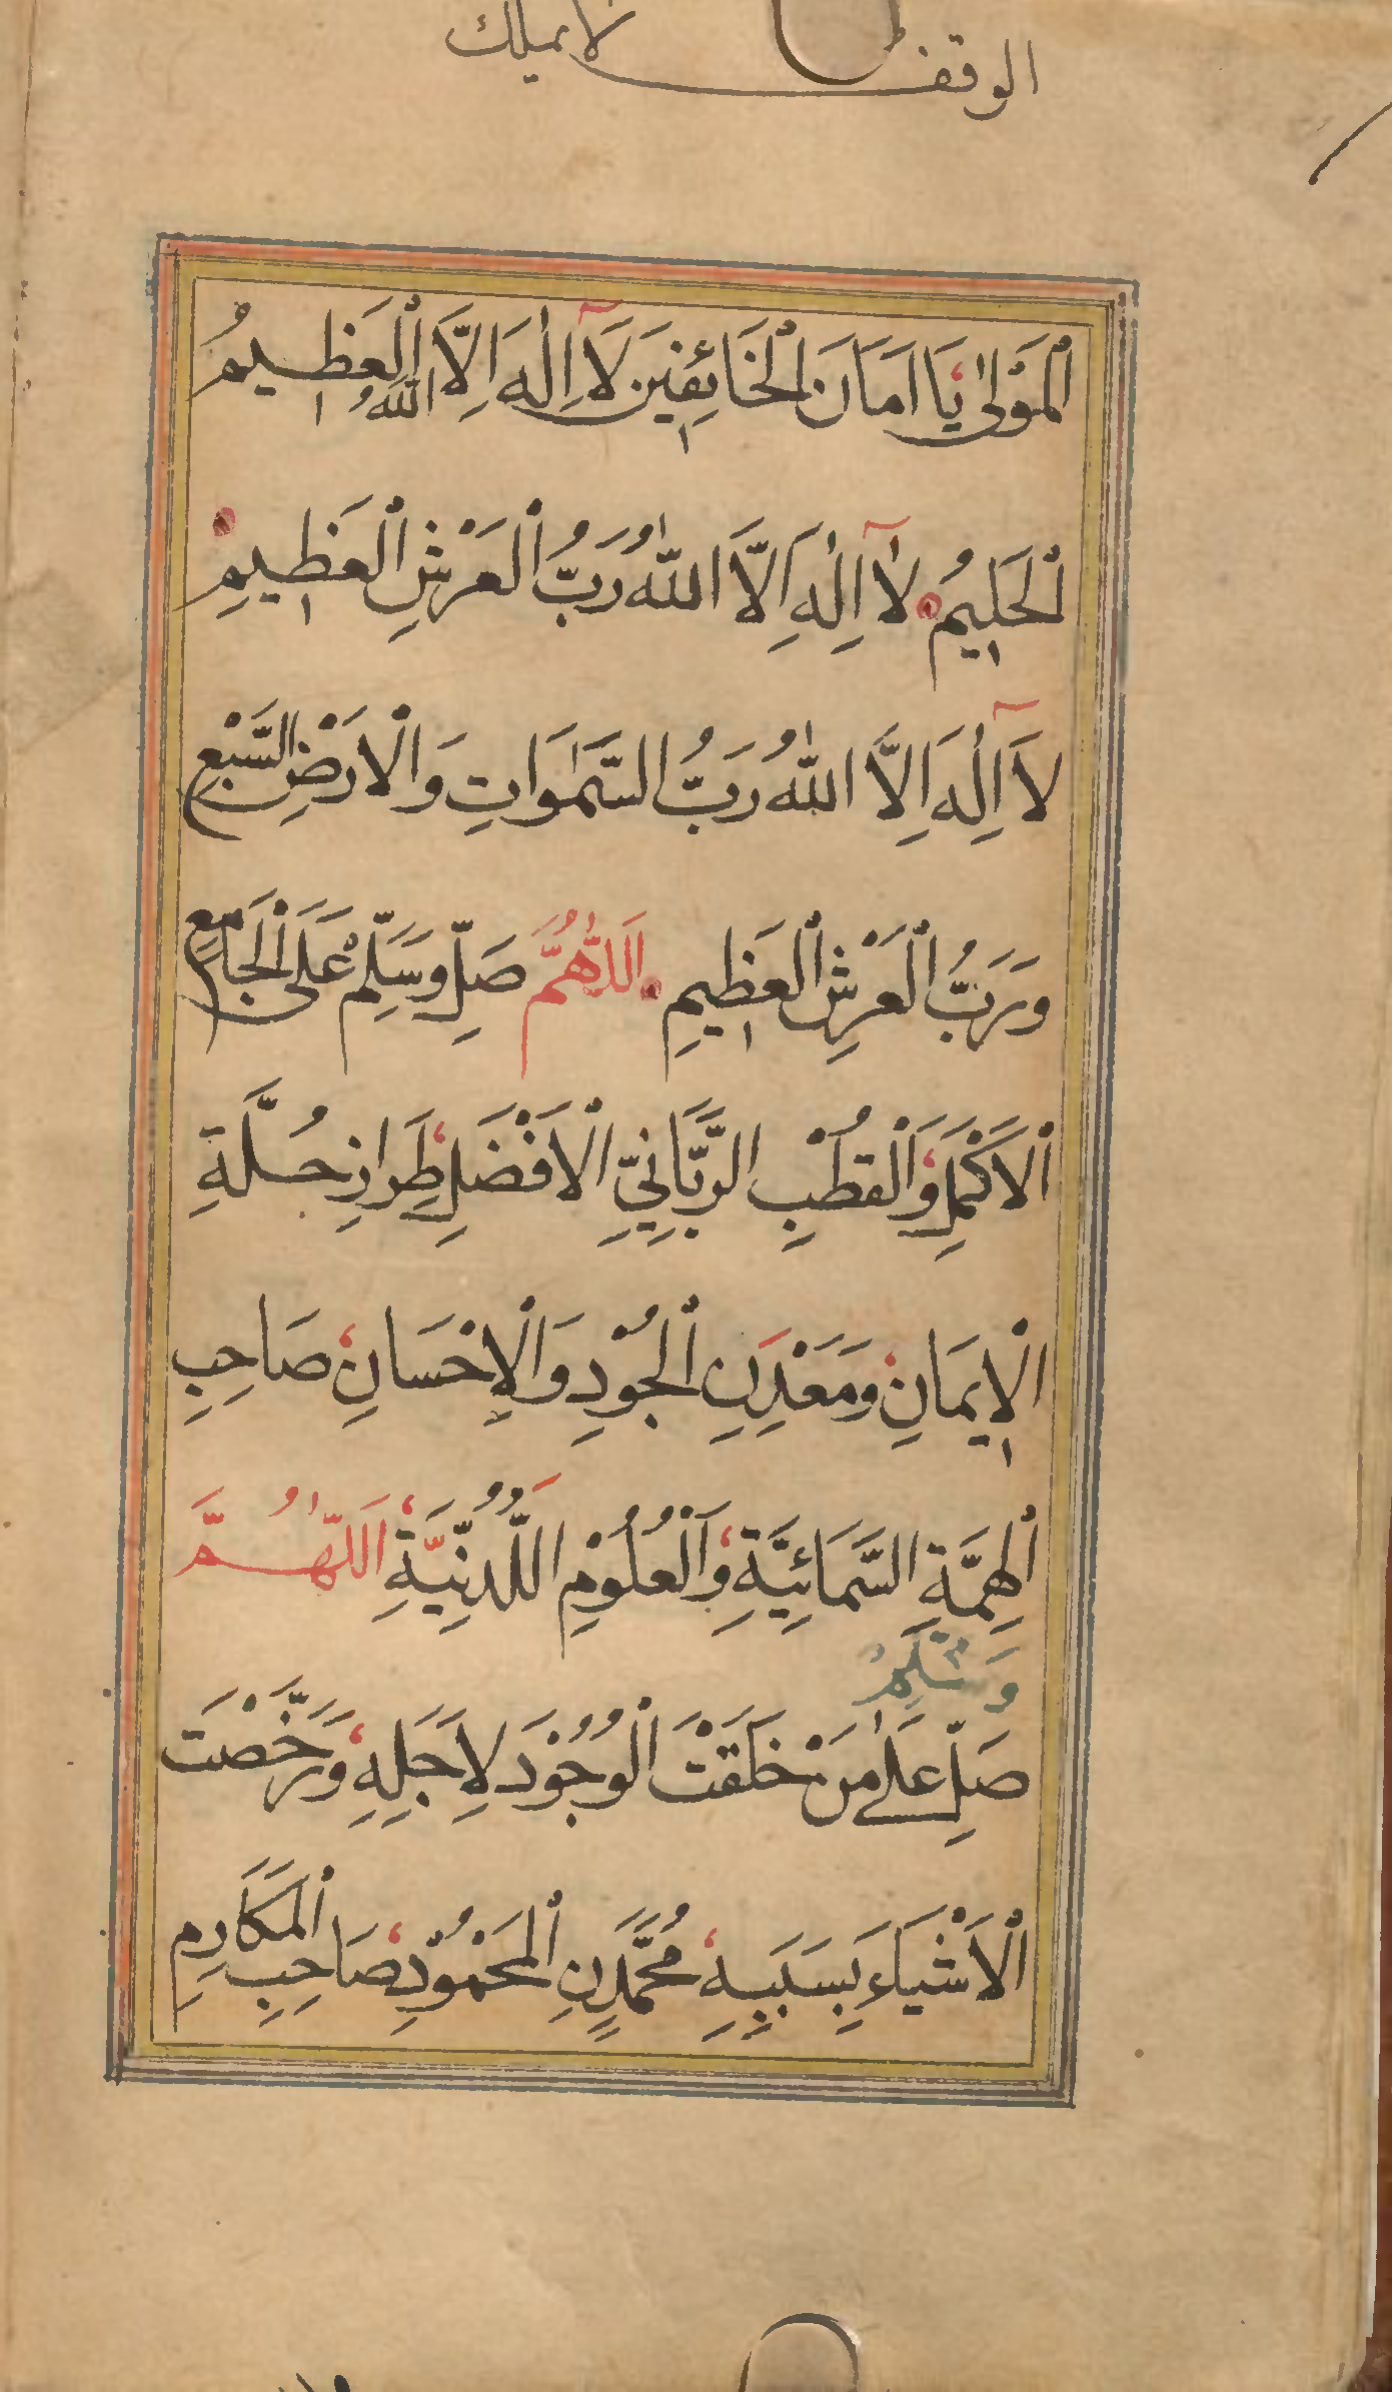 الوقف لا يملك
ٱلْمَوْلٰى يَا اَمَانَ ٱلْخَائِفِينَ لَآ اِلٰهَ اِلَّا اللّٰهُ ٱلْعَظِيمُ
ٱلْحَلِيمُ لَآ اِلٰهَ اِلَّا اللّٰهُ رَبُّ ٱلْعَرْشِ ٱلْعَظِيمِ
لَآ اِلٰهَ اِلَّا اللّٰهُ رَبُّ السَّمٰوَاتِ وَالْاَرْضِ السَّبْعِ
وَرَبُّ ٱلْعَرْشِ ٱلْعَظِيمِ اَللّٰهُمَّ صَلِّ وَسَلِّمْ عَلَى ٱلْجَامِعِ
ٱلْاَكْمَلِ وَٱلْقُطْبِ الرَّبَّانِيِّ الْاَفْضَلِ طِرَازِ حُلَّةِ
الْاِيمَانِ وَمَعْدِنِ ٱلْجُوْدِ وَالْاِحْسَانِ صَاحِبِ
ٱلْهِمَّةِ السَّمَائِيَّةِ وَٱلْعُلُوْمِ اللَّدُنِّيَّةِ اَللّٰهُمَّ
وَسَلِّمْ
صَلِّ عَلٰى مَنْ خَلَقْتَ الْوُجُوْدَ لِاَجْلِهِ وَرَخَّصْتَ
ٱلْاَشْيَاءَ بِسَبَبِهِ مُحَمَّدٍنِ ٱلْمَحْمُوْدِ صَاحِبِ ٱلْمَكَارِمِ